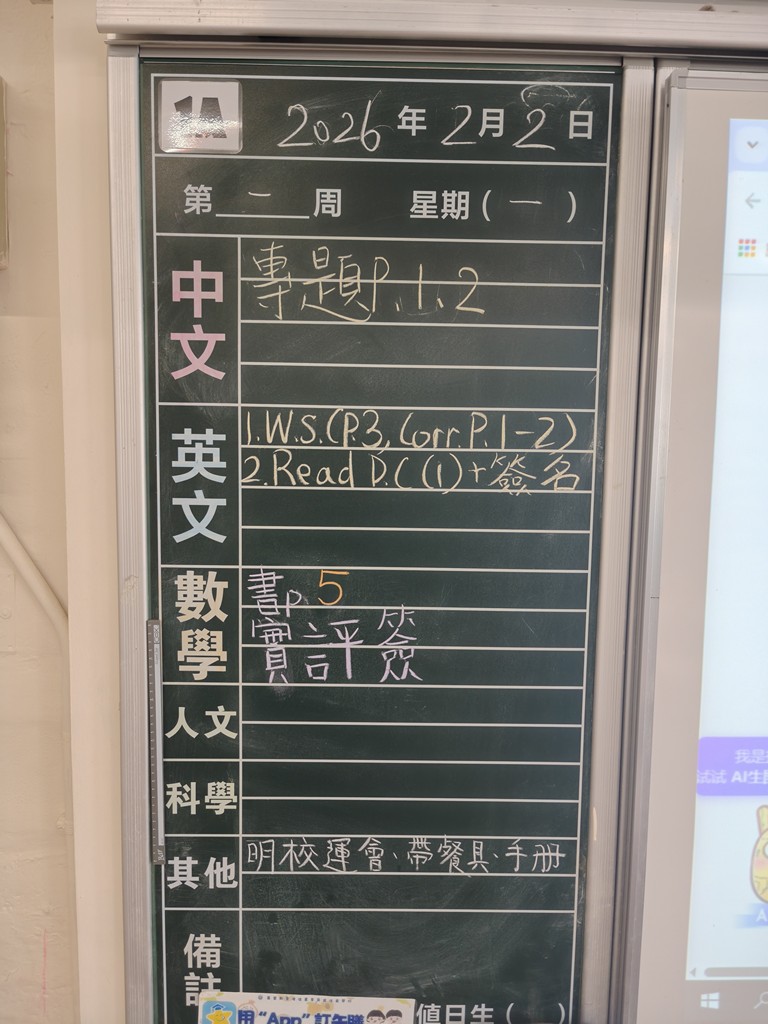 1A
2026年2月2日
第二周 星期(一)
中文
專題P.1、2
英文
1.W.S.(P.3, Corr.P.1-2)
2.Read D.C(1)+簽名
數學
書P 5
實評簽
人文
科學
其他
明校運會、帶餐具、手册
備註
用“App”訂午膳
值日生( )
我是
試試 AI生